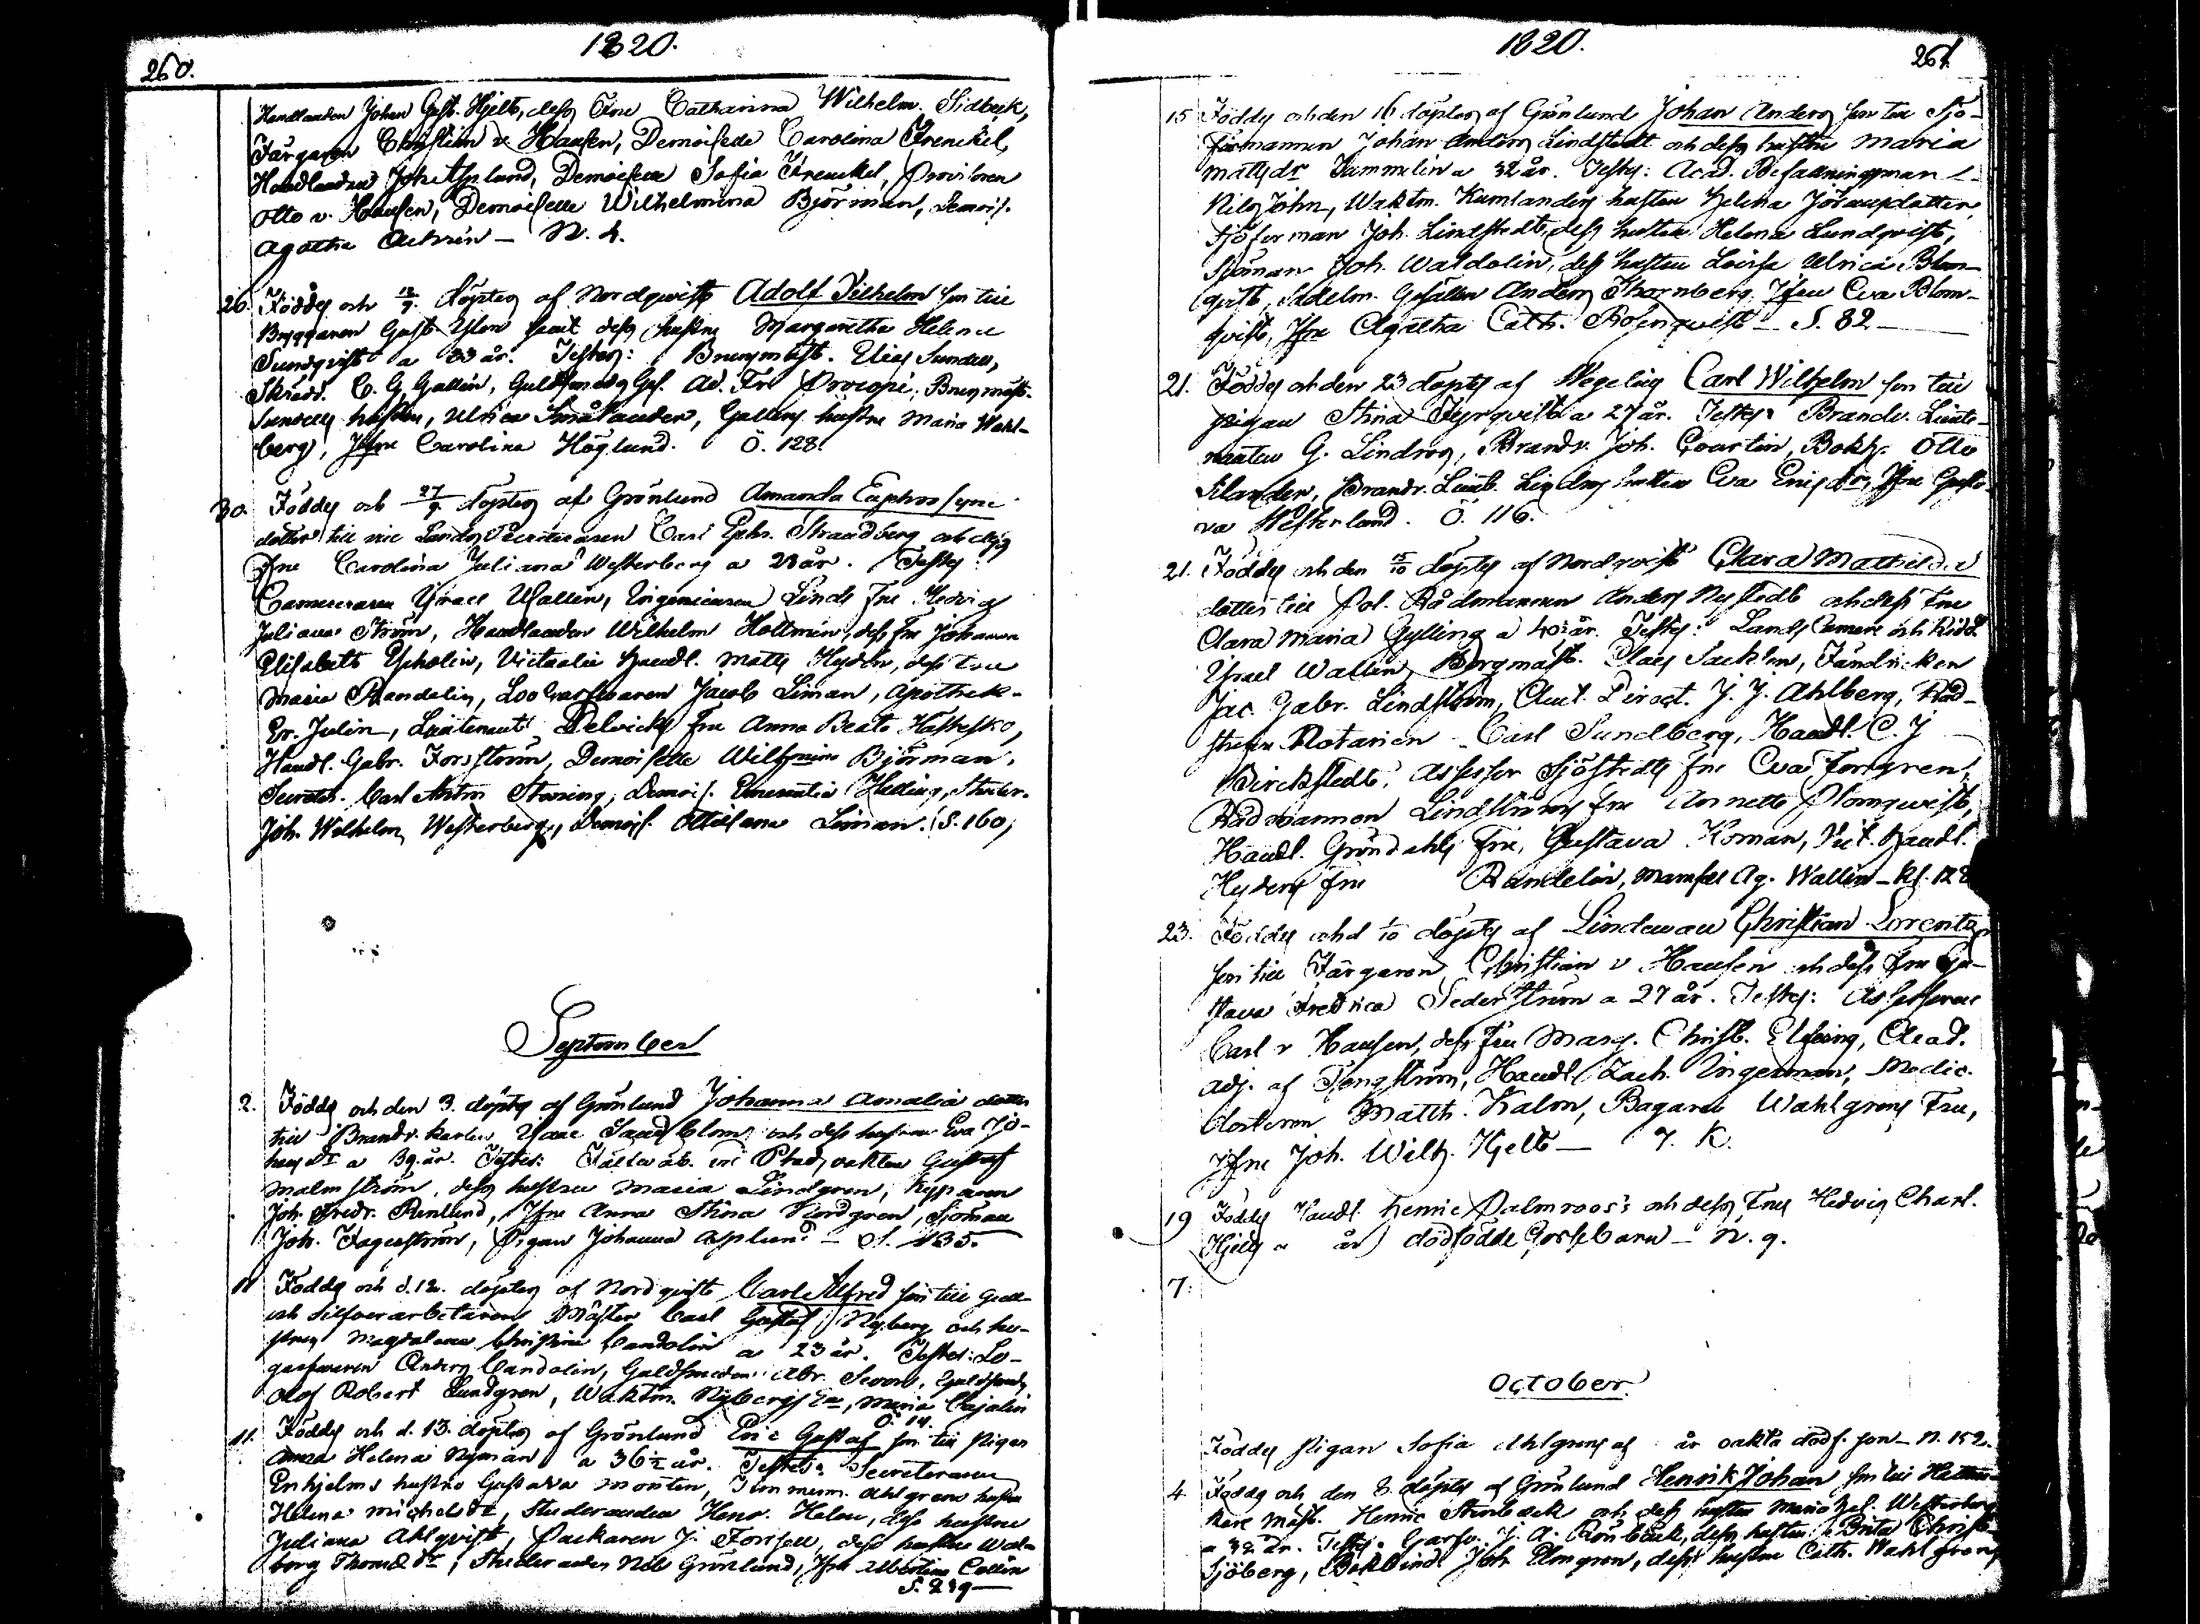 260.
1820.
Handlanden Johan Gust. Hjelt, dess Fru Catharina Wilhelm. Sidbeck,
Färgaren Christian v. Hausen, Demoiselle Carolina Frenckel,
Handlanden Joh. Asplund, Demoiselle Sofia Frenckel, Provisoren
Otto v. Hausen, Demoiselle Wilhelmina Björman, Demois.
Agatha - N. 4.
26. Föddes och 12/9 döptes af Nordqvist Adolf Vilhelm son till
Bryggaren Gust. samt dess hustru Margaretha Helena
Sundqvist a 33 år. Testes: Brunnmäst. Elias Sundell,
Skrädd. C. G. Gallén, Guldsmeds Ges. Ad. Fr. Procopé, Brunmäst.
Sundells hustru, Ulrica Smålander, Galléns hustru Maria Wahl-
berg, Jfru Carolina Höglund. Ö. 128.
30. Föddes och 27/9 döptes af Grönlund Amanda Euphrosyne
dotter till vice Lands Secreteraren Carl Ephr. Strandberg och dess
Fru Carolina Juliana Westerberg a 28 år. Testes:
Camereraren Israel Wallen, Ingenieuren Linds Fru Hedvig
Juliana Ström, Handlanden Wilhelm Holtmén, dess Fru Johanna
Elisabeth Ythulin, Victualie Handl. Matts Hydén, dess Fru
Maria Randelin, Jacob Liman, Apothek.
Er. Julin, Lieutenant Delvicks Fru Anna Beata Hästesko,
Handl. Gabr. Forsström, Demoiselle Wilhmina Björman,
Secret. Carl Anton Starring, Demois. Emerentia Helling, Studer.
Joh. Wilhelm Westerberg, Demois. Ottiliana Liman. S. 160,
September
2. Föddes och den 3. döptes af Grönlund Johanna Amalia dotter
till Brandv. karlen Isaac Sandblom och dess hustru Eva Jo-
hansdr a 39 år. Testes: Stadsvakten Gustaf
Malmström, dess hustru Maria Lindgren, Kyparen
Joh. Fredr. Renlund, Jfru Anna Stina Nordgren, Sjöman
Joh. Fagerström, Pigan Johanna Asplund - Kl. 135.
11 Föddes och d. 12. döptes af Nordqvist Carl Alfred son till Guld-
och Silfverarbetaren Mäster Carl Gustaf Nyberg och hu-
strun Magdalena Christina Candolin a 23 år. Testes: Lo-
garfvaren Anders Candolin, Guldsmeden Abr. Guldsmeds
Olof Robert Lundgren, Waktm. Nybergs En, Maria Cajalin
Ö. 14.
11. Föddes och d. 13. döptes af Grönlund Eric Gustaf son till Pigan
Anna Helena Nyman a 36 1/2 år. Testes: Secreteraren
Enhjelms hustru Gustava Montin, Timmerm. Ahlgrens hustru
Helena Michelsdr, Studeranden Henr. Helen, dess hustru
Juliana Ahlqvist, Packaren J. Forssell, dess hustru Wal-
borg Thomasdr, Studeranden Nils Grönlund, Jfru Albertina Collin
S. 239
1820.
261.
15 Föddes och den 16 döptes af Grönlund Johan Anders son till Sjö-
förmannen Johan Anders Lindstedt och dess hustru Maria
Mattsdr Tammelin a 32 år. Testes: Acad. Befallningsman
Nils John, Waktm. Kumlanders hustru Helena Johansdotter,
Sjöforman Joh. Lindstedt, dess hustru Helena Lundqvist,
Sjöman Joh. Waldolin, dess hustru Lovisa Ulrica Blom-
qvist, Sadelm. Gesällen Anders Tharnberg, Jfru Eva Blom-
qvist, Jfru Agatha Cath. Rosenqvist - S. 82
21. Föddes och den 23 döptes af Wegelius Carl Wilhelm son till
pigan Stina Fyrqvist a 27 år. Testes: Brandv. Lieute-
nanten G. Lindros, Brandv. Joh. Courtin, Bokh. Otto
Silander, Brandv. Lieut. Lindros hustru Eva Ericsdr, Jfru Gusta-
va Westerlund. Ö. 116.
21. Föddes och den 15/10 döptes af Nordqvist Clara Mathilda
dotter till Pol. Rådmannen Anders Nystedt och dess Fru
Clara Maria Gylling a 40 1/2 år. Testes: Lands Camer. och Ridd.
Israel Wallen, Borgmäst. Claes Sacklén, Fändricken
Jac. Gabr. Lindström, Cant. Direct. J. J. Ahlberg, Råd-
stufvu Notarien Carl Sundberg, Handl. C. J.
Birckstedt, Assessor Sjöstedts Fru Eva Forsgren,
Rådmannen Lindströms Fru Annette Blomqvist,
Handl. Gröndahls Fru, Gustava Homan, Vict. Handl.
Hydens Fru Randelin, Mamsell Ag. Wallen - Kl. 128
23. Föddes och d 1/10 döptes af Lindeman Christian Lorentz
son till Färgaren Christian v Hausen och dess Fru Gu-
stava Fredrica Sederström a 27 år. Testes: Assessoren
Carl v Hausen, dess Fru Marg. Christ. Elfving, Acad.
Adj. af Tengström, Handl. Zach. Ingerman, Medic.
doctoren Matth. Kalm, Bagaren Wahlgrens Fru,
Jfru Joh. Wilh. Hjelt - 7. K.
19 Föddes Handl. Henric Palmroos's och dess Frus Hedvig Charl.
Hjelts a år dödfödde Gossebarn - N. 9.
7.
October.
Föddes pigan Sofia Ahlgrens af år oäkta dödf. son - N. 152.
4 Föddes och den 8. döptes af Grönlund Henrik Johan son till Hattma-
kare Mäst. Henric och dess hustru Maria Hel. Westerberg
a 32 år. Testes: Garfv. J. A. Rönbäck, dess hustru Brita Christ.
Sjöberg, Bokbind. Joh. Elmgren, dess hustru Cath. Wahlgren